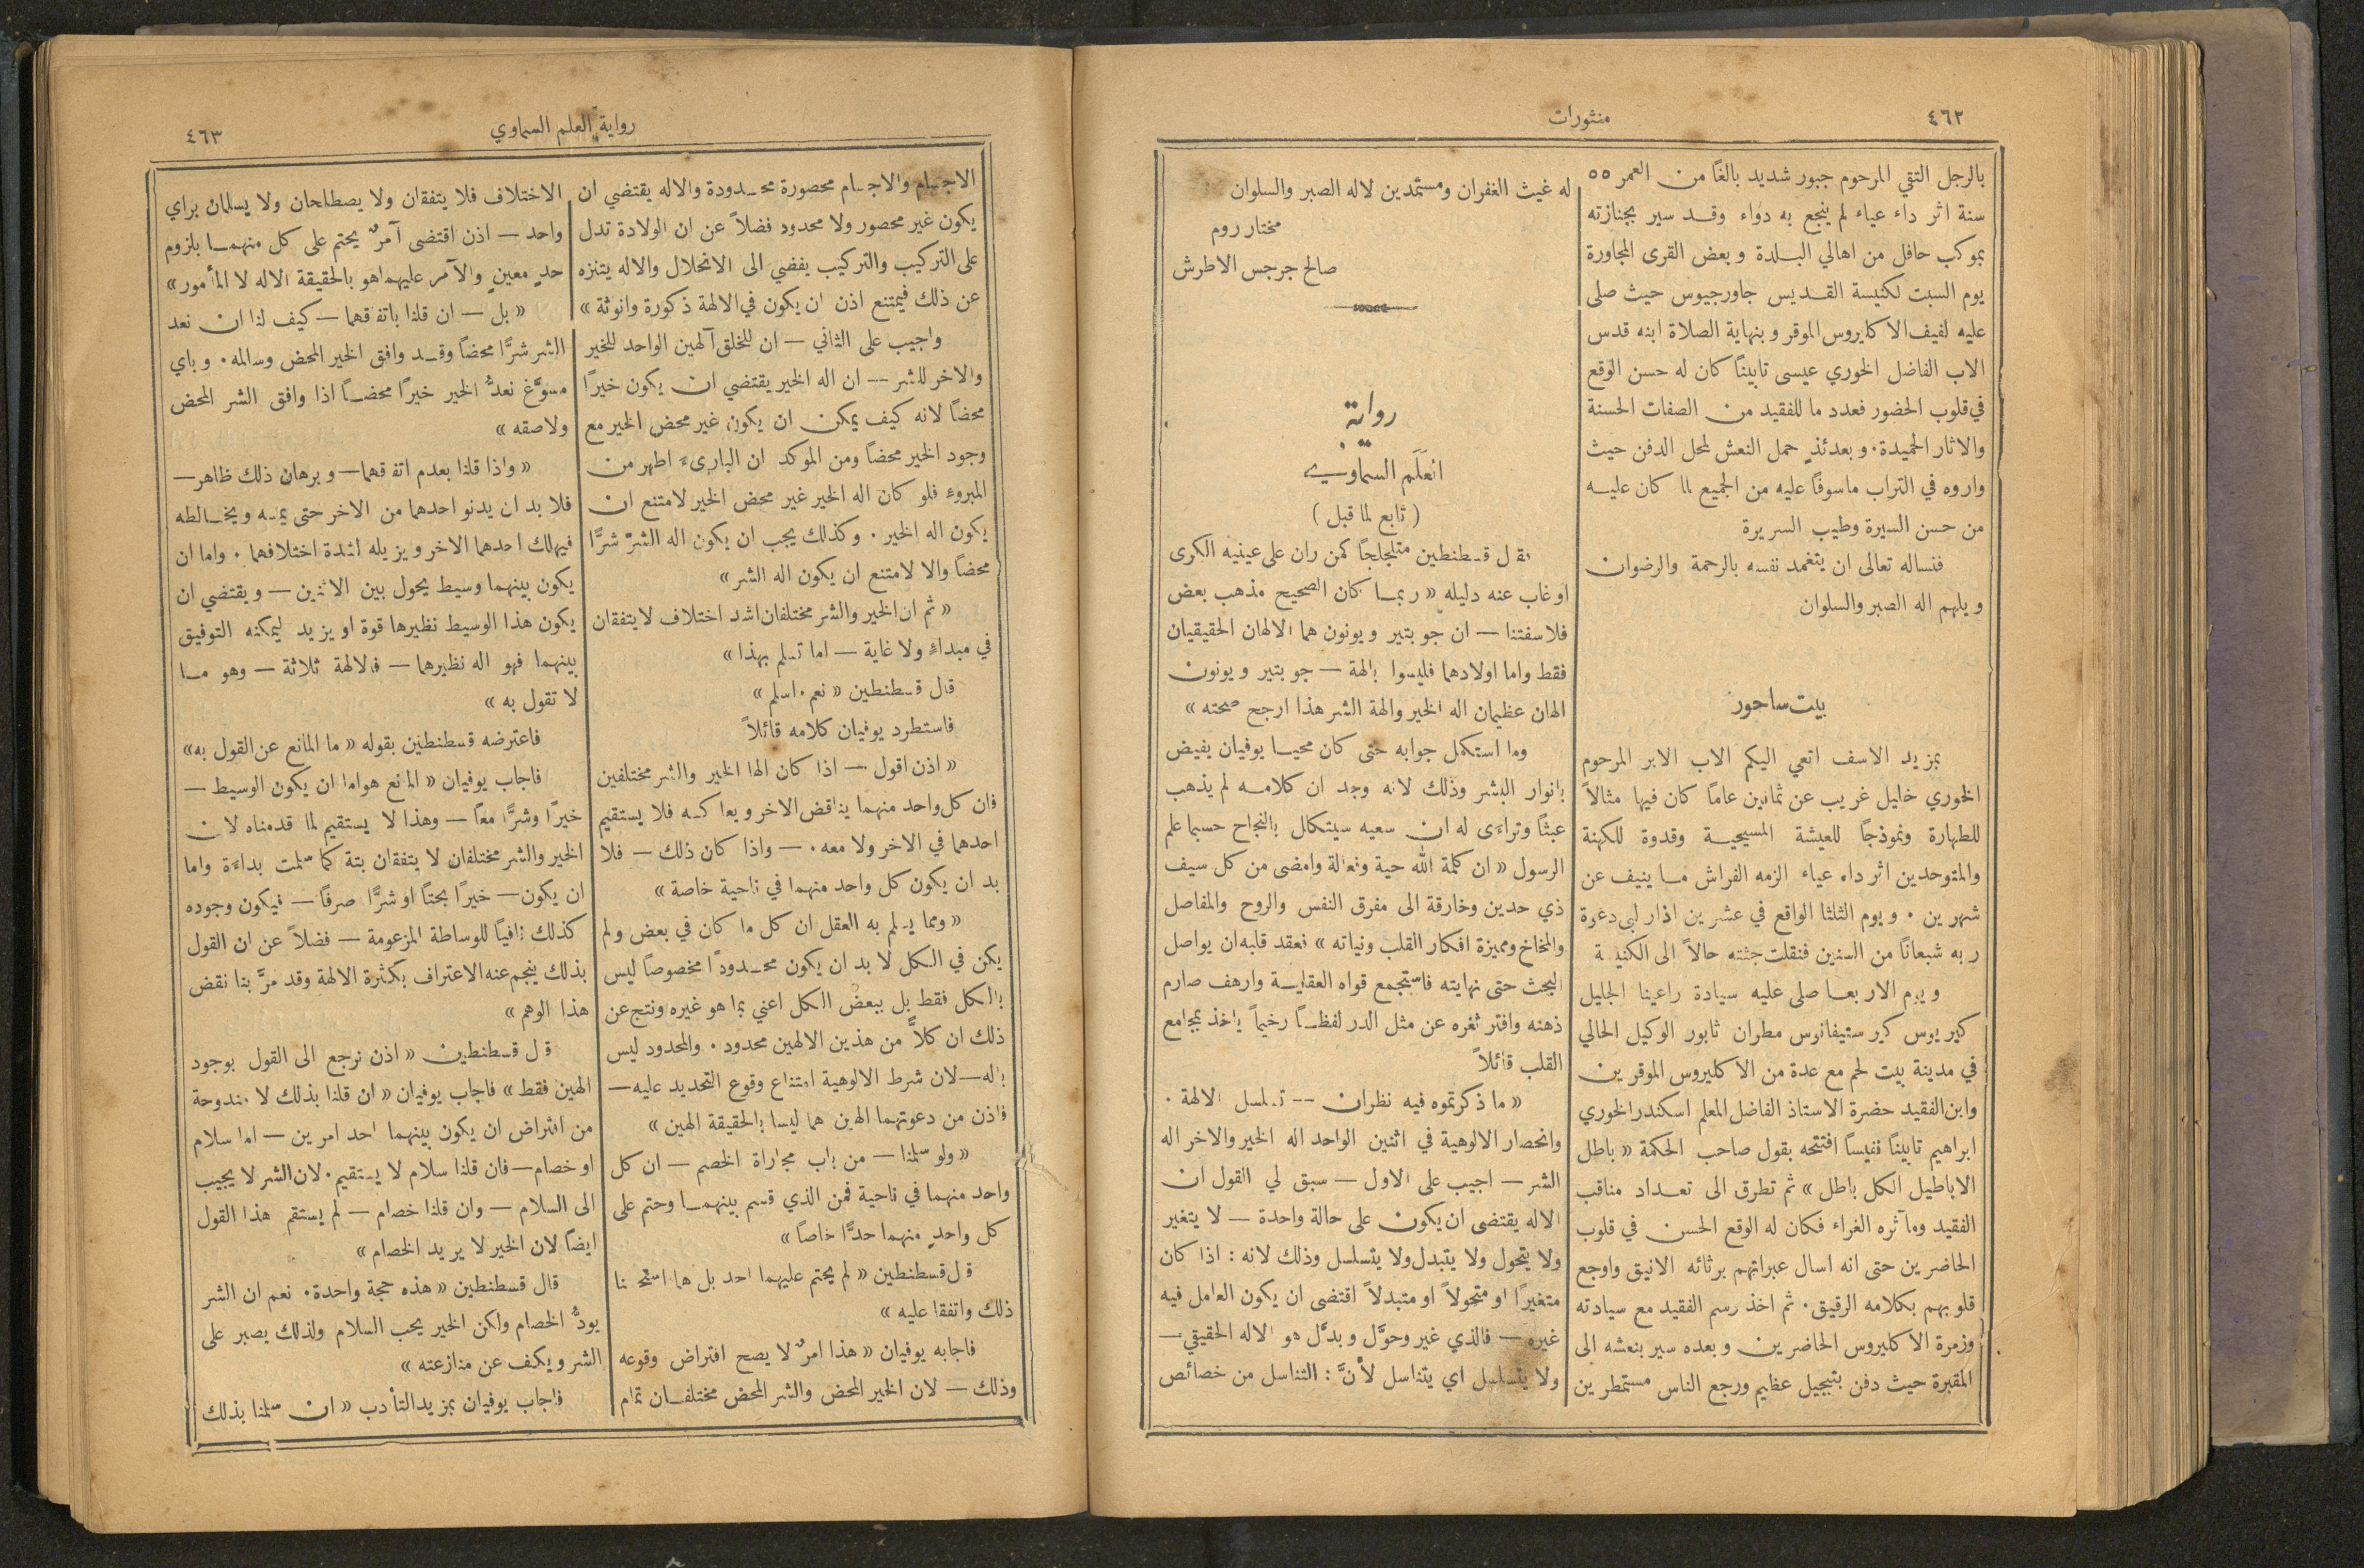 ٤٦٢
منثورات
بالرجل التقي المرحوم جبور شديد بالغًا من العمر ٥٥
سنة اثر داء عياء لم ينجع به دواء وقد سير بجنازته
بموكب حافل من اهالي البلدة وبعض القرى المجاورة
يوم السبت لكنيسة القديس جاورجيوس حيث صلى
عليه لفيف الاكليروس الموقر وبنهاية الصلاة ابنه قدس
الاب الفاضل الخوري عيسى تابينًا كان له حسن الوقع
في قلوب الحضور فعدد ما للفقيد من الصفات الحسنة
والاثار الحميدة. وبعدئذٍ حمل النعش لمحل الدفن حيث
واروه في التراب ماسوفًا عليه من الجميع لما كان عليه
من حسن السيرة وطيب السريرة
فنساله تعالى ان يتغمد نفسه بالرحمة والرضوان
ويلهم اله الصبر والسلوان
بيت ساحور
بمزيد الاسف انعي اليكم الاب الابر المرحوم
الخوري خليل غريب عن ثمانين عامًا كان فيها مثالاً
للطهارة ونموذجًا للعيشة المسيحية وقدوة للكهنة
والمتوحدين اثر داء عياء الزمه الفراش ما ينيف عن
شهرين . ويوم الثلثا الواقع في عشرين اذار لبى دعوة
ربه شبعانًا من السنين فنقلت جثته حالاً الى الكنيسة
ويوم الاربعا صلى عليه سيادة راعينا الجليل
كيريوس كير ستيفانوس مطران ثابور الوكيل الحالي
في مدينة بيت لحم مع عدة من الاكليروس الموقرين
وابن الفقيد حضرة الاستاذ الفاضل المعلم اسكندر الخوري
ابراهيم تابينًا نفيسًا افتتحه بقول صاحب الحكمة « باطل
الاباطيل الكل باطل » ثم تطرق الى تعداد مناقب
الفقيد ومآثره الغراء فكان له الوقع الحسن في قلوب
الحاضرين حتى انه اسال عبراتهم برثائه الانيق واوجع
قلوبهم بكلامه الرقيق. ثم اخذ رسم الفقيد مع سيادته
وزمرة الاكليروس الحاضرين وبعده سير بنعشه الى
المقبرة حيث دفن بتبجيل عظيم ورجع الناس مستمطرين
له غيث الغفران ومستمدين لاله الصبر والسلوان
مختار روم
صالح جرجس الاطرش
رواية
العَلَم السماوي
( تابع لما قبل )
نقال قسطنطين متلجلجًا كمن ران على عينيه الكرى
او غاب عنه دليله « ربما كان الصحيح مذهب بعض
فلاسفتنا — ان جوبتير ويونون هما الالهان الحقيقيان
فقط واما اولادهما فليسوا بالهة — جوبتير ويونون
الهان عظيمان اله الخير والهة الشر هذا ارجح صحته »
وما استكمل جوابه حتى كان محيا يوفيان يفيض
بانوار البشر وذلك لانه وجد ان كلامه لم يذهب
عبثًا وتراءى له ان سعيه سيتكلل بالنجاح حسبما علم
الرسول « ان كلمة الله حية وفعالة وامضى من كل سيف
ذي حدين وخارقة الى مفرق النفس والروح والمفاصل
والمخاخ ومميزة افكار القلب ونياته » فعقد قلبه ان يواصل
البحث حتى نهايته فاستجمع قواه العقلية وارهف صارم
ذهنه وافتر ثغره عن مثل الدر لفظًا رخيمًا ياخذ بمجامع
القلب قائلاً
« ما ذكرتموه فيه نظران — تسلسل الالهة .
وانحصار الالوهية في اثنين الواحد اله الخير والاخر اله
الشر — اجيب على الاول — سبق لي القول ان
الاله يقتضى ان يكون على حالة واحدة — لا يتغير
ولا يتحول ولا يتبدل ولا يتسلسل وذلك لانه : اذا كان
متغيرًا او متحولاً او متبدلاً اقتضى ان يكون العامل فيه
غيره — فالذي غير وحوَّل وبدَّل هو الاله الحقيقي —
ولا يتسلسل اي يتناسل لأنَّ : التناسل من خصائص
رواية العلم السماوي
٤٦٣
الاجسام والاجسام محصورة محدودة والاله يقتضي ان
يكون غير محصور ولا محدود فضلاً عن ان الولادة تدل
على التركيب والتركيب يفضي الى الانحلال والاله يتنزه
عن ذلك فيمتنع اذن ان يكون في الالهة ذكورة وانوثة »
واجيب على الثاني — ان للخلق آلهين الواحد للخير
والاخر للشر — ان اله الخير يقتضي ان يكون خيرًا
محضًا لانه كيف يمكن ان يكون غير محض الخير مع
وجود الخير محضًا ومن الموكد ان البارىء اطهر من
المبروء فلو كان اله الخير غير محض الخير لامتنع ان
يكون اله الخير . وكذلك يجب ان يكون اله الشرّ شرًّا
محضًا والا لامتنع ان يكون اله الشر »
« ثم ان الخير والشر مختلفان اشد اختلاف لا يتفقان
في مبداءٍ ولا غاية — اما تسلم بهذا »
قال قسطنطين « نعم . اسلم »
فاستطرد يوفيان كلامه قائلاً
« اذن اقول — اذا كان الها الخير والشر مختلفين
فان كل واحد منهما يناقض الاخر ويعاكسه فلا يستقيم
احدهما في الاخر ولا معه. — واذا كان ذلك — فلا
بد ان يكون كل واحد منهما في ناحية خاصة »
« ومما يسلم به العقل ان كل ما كان في بعض ولم
يكن في الكل لا بد ان يكون محدودًا مخصوصًا ليس
بالكل فقط بل ببعض الكل اعني بما هو غيره ونتج عن
ذلك ان كلاًّ من هذين الالهين محدود . والمحدود ليس
باله — لان شرط الالوهية امتناع وقوع التحديد عليه —
فاذن من دعوتهما الهين هما ليسا بالحقيقة الهين »
« ولو سلمنا — من باب مجاراة الخصم — ان كل
واحد منهما في ناحية فمن الذي قسم بينهما وحتم على
كل واحدٍ منهما حدًّا خاصًا »
قال قسطنطين « لم يحتم عليهما احد بل هما استحسنا
ذلك واتفقا عليه »
فاجابه يوفيان « هذا امرٌ لا يصح افتراض وقوعه
وذلك — لان الخير المحض والشر المحض مختلفان تمام
الاختلاف فلا يتفقان ولا يصطلحان ولا يسلمان براي
واحد — اذن اقتضى آمرٌ يحتم على كل منهما بلزوم
حدٍ معينٍ والآمر عليهما هو بالحقيقة الاله لا المأمور »
« بل — ان قلنا باتفاقهما — كيف لنا ان نعد
الشر شرًّا محضًا وقد وافق الخير المحض وسالمه . وباي
مسوَّغ نعدُّ الخير خيرًا محضًا اذا وافق الشر المحض
ولاصقه »
« واذا قلنا بعدم اتفاقهما — وبرهان ذلك ظاهر —
فلا بد ان يدنو احدهما من الاخر حتى يمسه ويخالطه
فيهلك احدهما الاخر ويزيله لشدة اختلافهما . واما ان
يكون بينهما وسيط يحول بين الاثنين — ويقتضي ان
يكون هذا الوسيط نظيرها قوة او يزيد ليمكنه التوفيق
بينهما فهو اله نظيرهما — فالالهة ثلاثة — وهو ما
لا تقول به »
فاعترضه قسطنطين بقوله « ما المانع عن القول به »
فاجاب يوفيان « المانع هو اما ان يكون الوسيط —
خيرًا وشرًّا معًا — وهذا لا يستقيم لما قدمناه لان
الخير والشر مختلفان لا يتفقان بتة كما سلمت بداءة واما
ان يكون — خيرًا بحتًا او شرًّا صرفًا — فيكون وجوده
كذلك نافيًا للوساطة المزعومة — فضلاً عن ان القول
بذلك ينجم عنه الاعتراف بكثرة الالهة وقد مرَّ بنا نقض
هذا الوهم »
قال قسطنطين « اذن نرجع الى القول بوجود
الهين فقط » فاجاب يوفيان « ان قلنا بذلك لا مندوحة
من افتراض ان يكون بينهما احد امرين — اما سلام
او خصام — فان قلنا سلام لا يستقيم . لان الشر لا يجيب
الى السلام — وان قلنا خصام — لم يستقم هذا القول
ايضًا لان الخير لا يريد الخصام »
قال قسطنطين « هذه حجة واحدة . نعم ان الشر
يودُّ الخصام ولكن الخير يحب السلام ولذلك يصبر على
الشر ويكف عن منازعته »
فاجاب يوفيان بمزيد التأدب « ان سلمنا بذلك